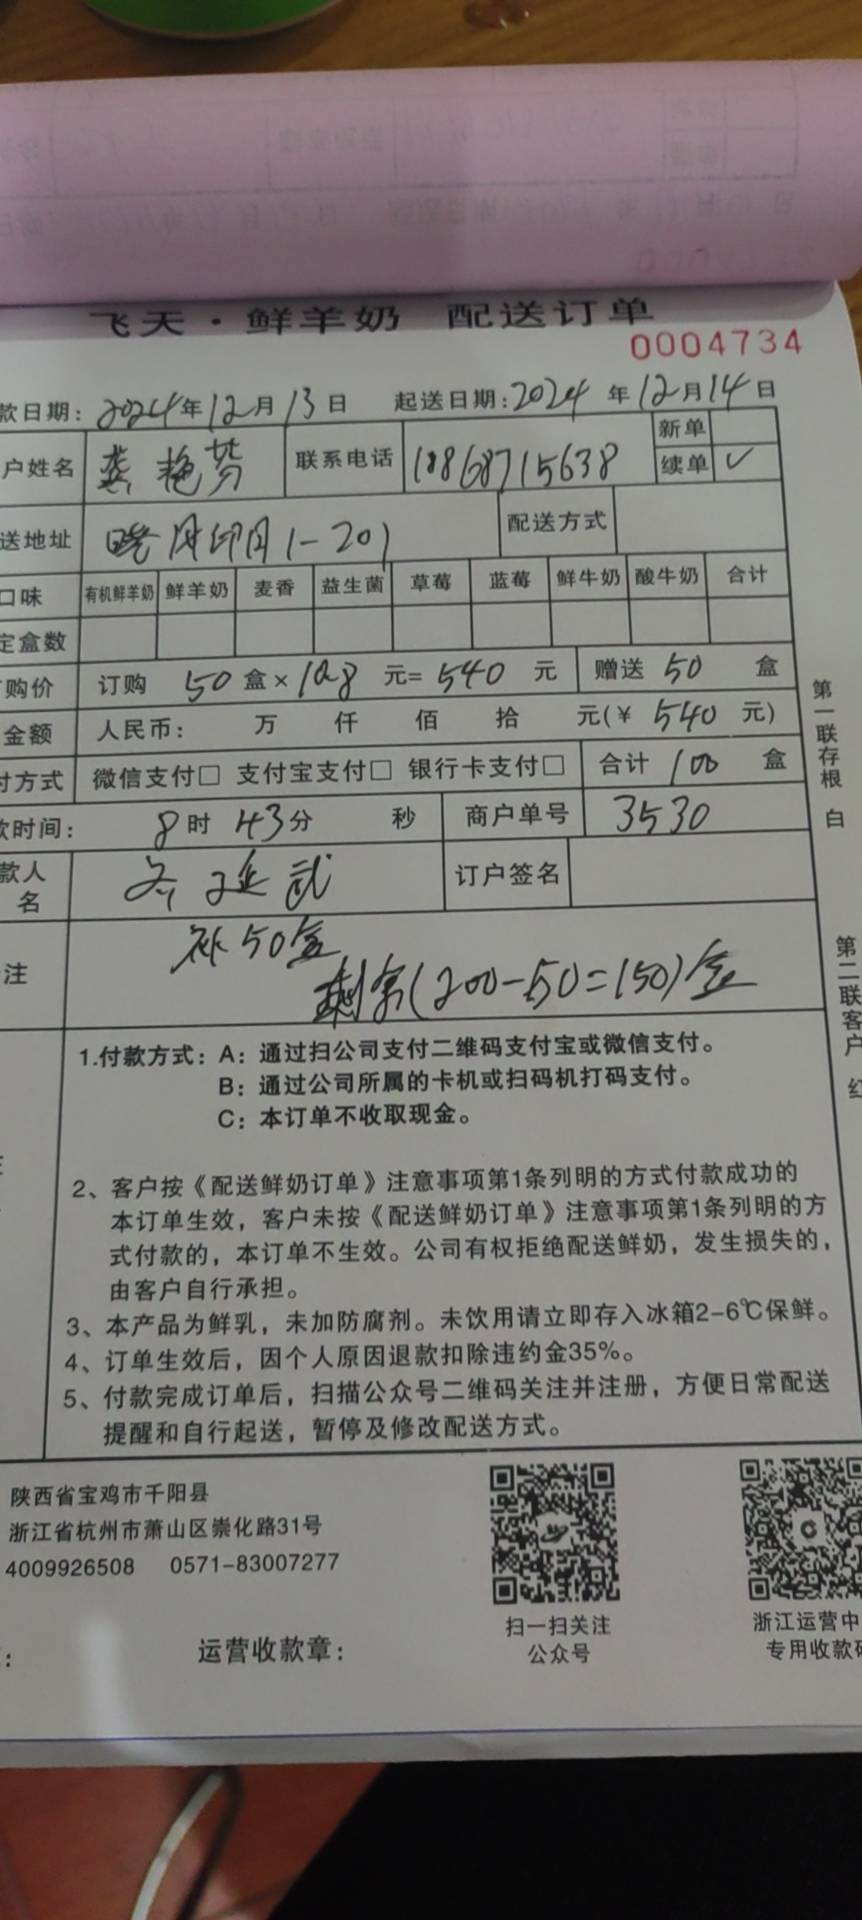 飞天·鲜羊奶 配送订单
0004734
款日期: 2024年12月13日 起送日期: 2024年12月14日
户姓名 龚艳芬 联系电话 18868715638 新单
续单 ✓
送地址 印月1-201 配送方式
口味 有机鲜羊奶 鲜羊奶 麦香 益生菌 草莓 蓝莓 鲜牛奶 酸牛奶 合计
定盒数
购价 订购 50 盒×10.8 元= 540 元 赠送 50 盒
金额 人民币: 万 仟 佰 拾 元(¥ 540 元)
付方式 微信支付□ 支付宝支付□ 银行卡支付□ 合计 100 盒
款时间: 8时 43分 秒 商户单号 3530
款人
名 延武 订户签名
注 补50盒
剩余(200-50=150)盒
第一联存根 白
第二联客户 红
1.付款方式: A: 通过扫公司支付二维码支付宝或微信支付。
B: 通过公司所属的卡机或扫码机打码支付。
C: 本订单不收取现金。
2、客户按《配送鲜奶订单》注意事项第1条列明的方式付款成功的
本订单生效，客户未按《配送鲜奶订单》注意事项第1条列明的方
式付款的，本订单不生效。公司有权拒绝配送鲜奶，发生损失的，
由客户自行承担。
3、本产品为鲜乳，未加防腐剂。未饮用请立即存入冰箱2-6℃保鲜。
4、订单生效后，因个人原因退款扣除违约金35%。
5、付款完成订单后，扫描公众号二维码关注并注册，方便日常配送
提醒和自行起送，暂停及修改配送方式。
陕西省宝鸡市千阳县
浙江省杭州市萧山区崇化路31号
4009926508 0571-83007277
扫一扫关注
公众号
浙江运营中
专用收款码
运营收款章: